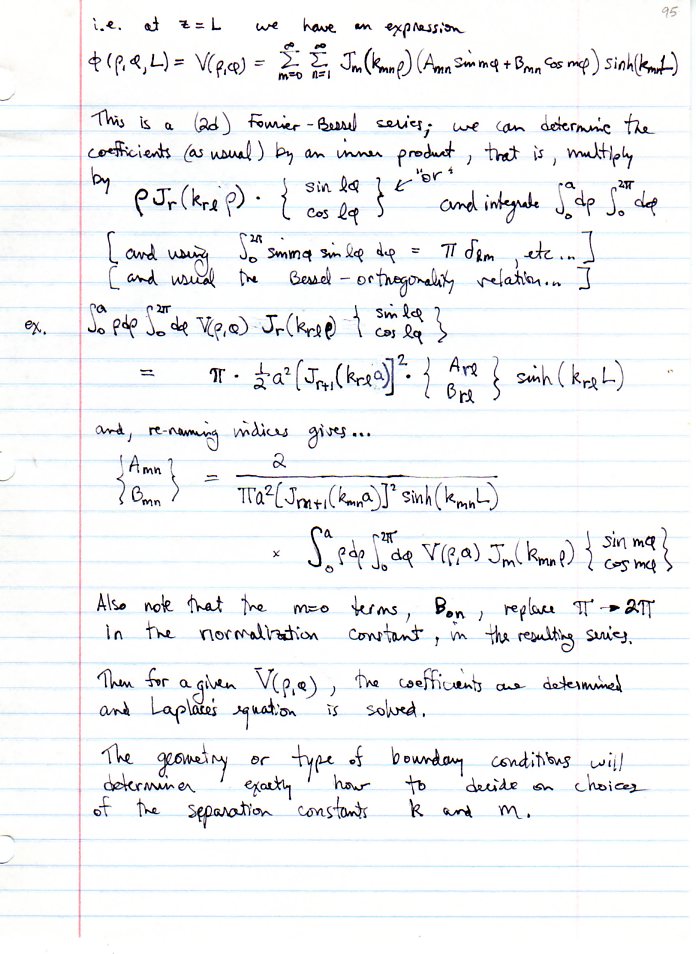 95
i.e. at z = L we have an expression
ϕ(ρ,φ,L) = V(ρ,φ) = ∑_{m=0}^{∞} ∑_{n=1}^{∞} J_m(k_{mn}ρ)(A_{mn} sin mφ + B_{mn} cos mφ) sinh(k_{mn}L)
This is a (2d) Fourier-Bessel series; we can determine the
coefficients (as usual) by an inner product, that is, multiply
by ρ J_r(k_{rl} ρ) · { sin lφ / cos lφ } ← "or" and integrate ∫_0^a dρ ∫_0^{2π} dφ
[ and using ∫_0^{2π} sin mφ sin lφ dφ = π δ_{lm}, etc... ]
[ and usual the Bessel-orthogonality relation... ]
ex. ∫_0^a ρdρ ∫_0^{2π} dφ V(ρ,φ) J_r(k_{rl}ρ) { sin lφ / cos lφ }
= π · ½a² [J_{r+1}(k_{rl}a)]² · { A_{rl} / B_{rl} } sinh(k_{rl}L)
and, re-naming indices gives...
{ A_{mn} / B_{mn} } = 2 / πa²[J_{m+1}(k_{mn}a)]² sinh(k_{mn}L)
× ∫_0^a ρdρ ∫_0^{2π} dφ V(ρ,φ) J_m(k_{mn}ρ) { sin mφ / cos mφ }
Also note that the m=0 terms, B_{0n}, replace π → 2π
in the normalization constant, in the resulting series.
Then for a given V(ρ,φ), the coefficients are determined
and Laplace's equation is solved.
The geometry or type of boundary conditions will
determiner exactly how to decide on choices
of the separation constants k and m.